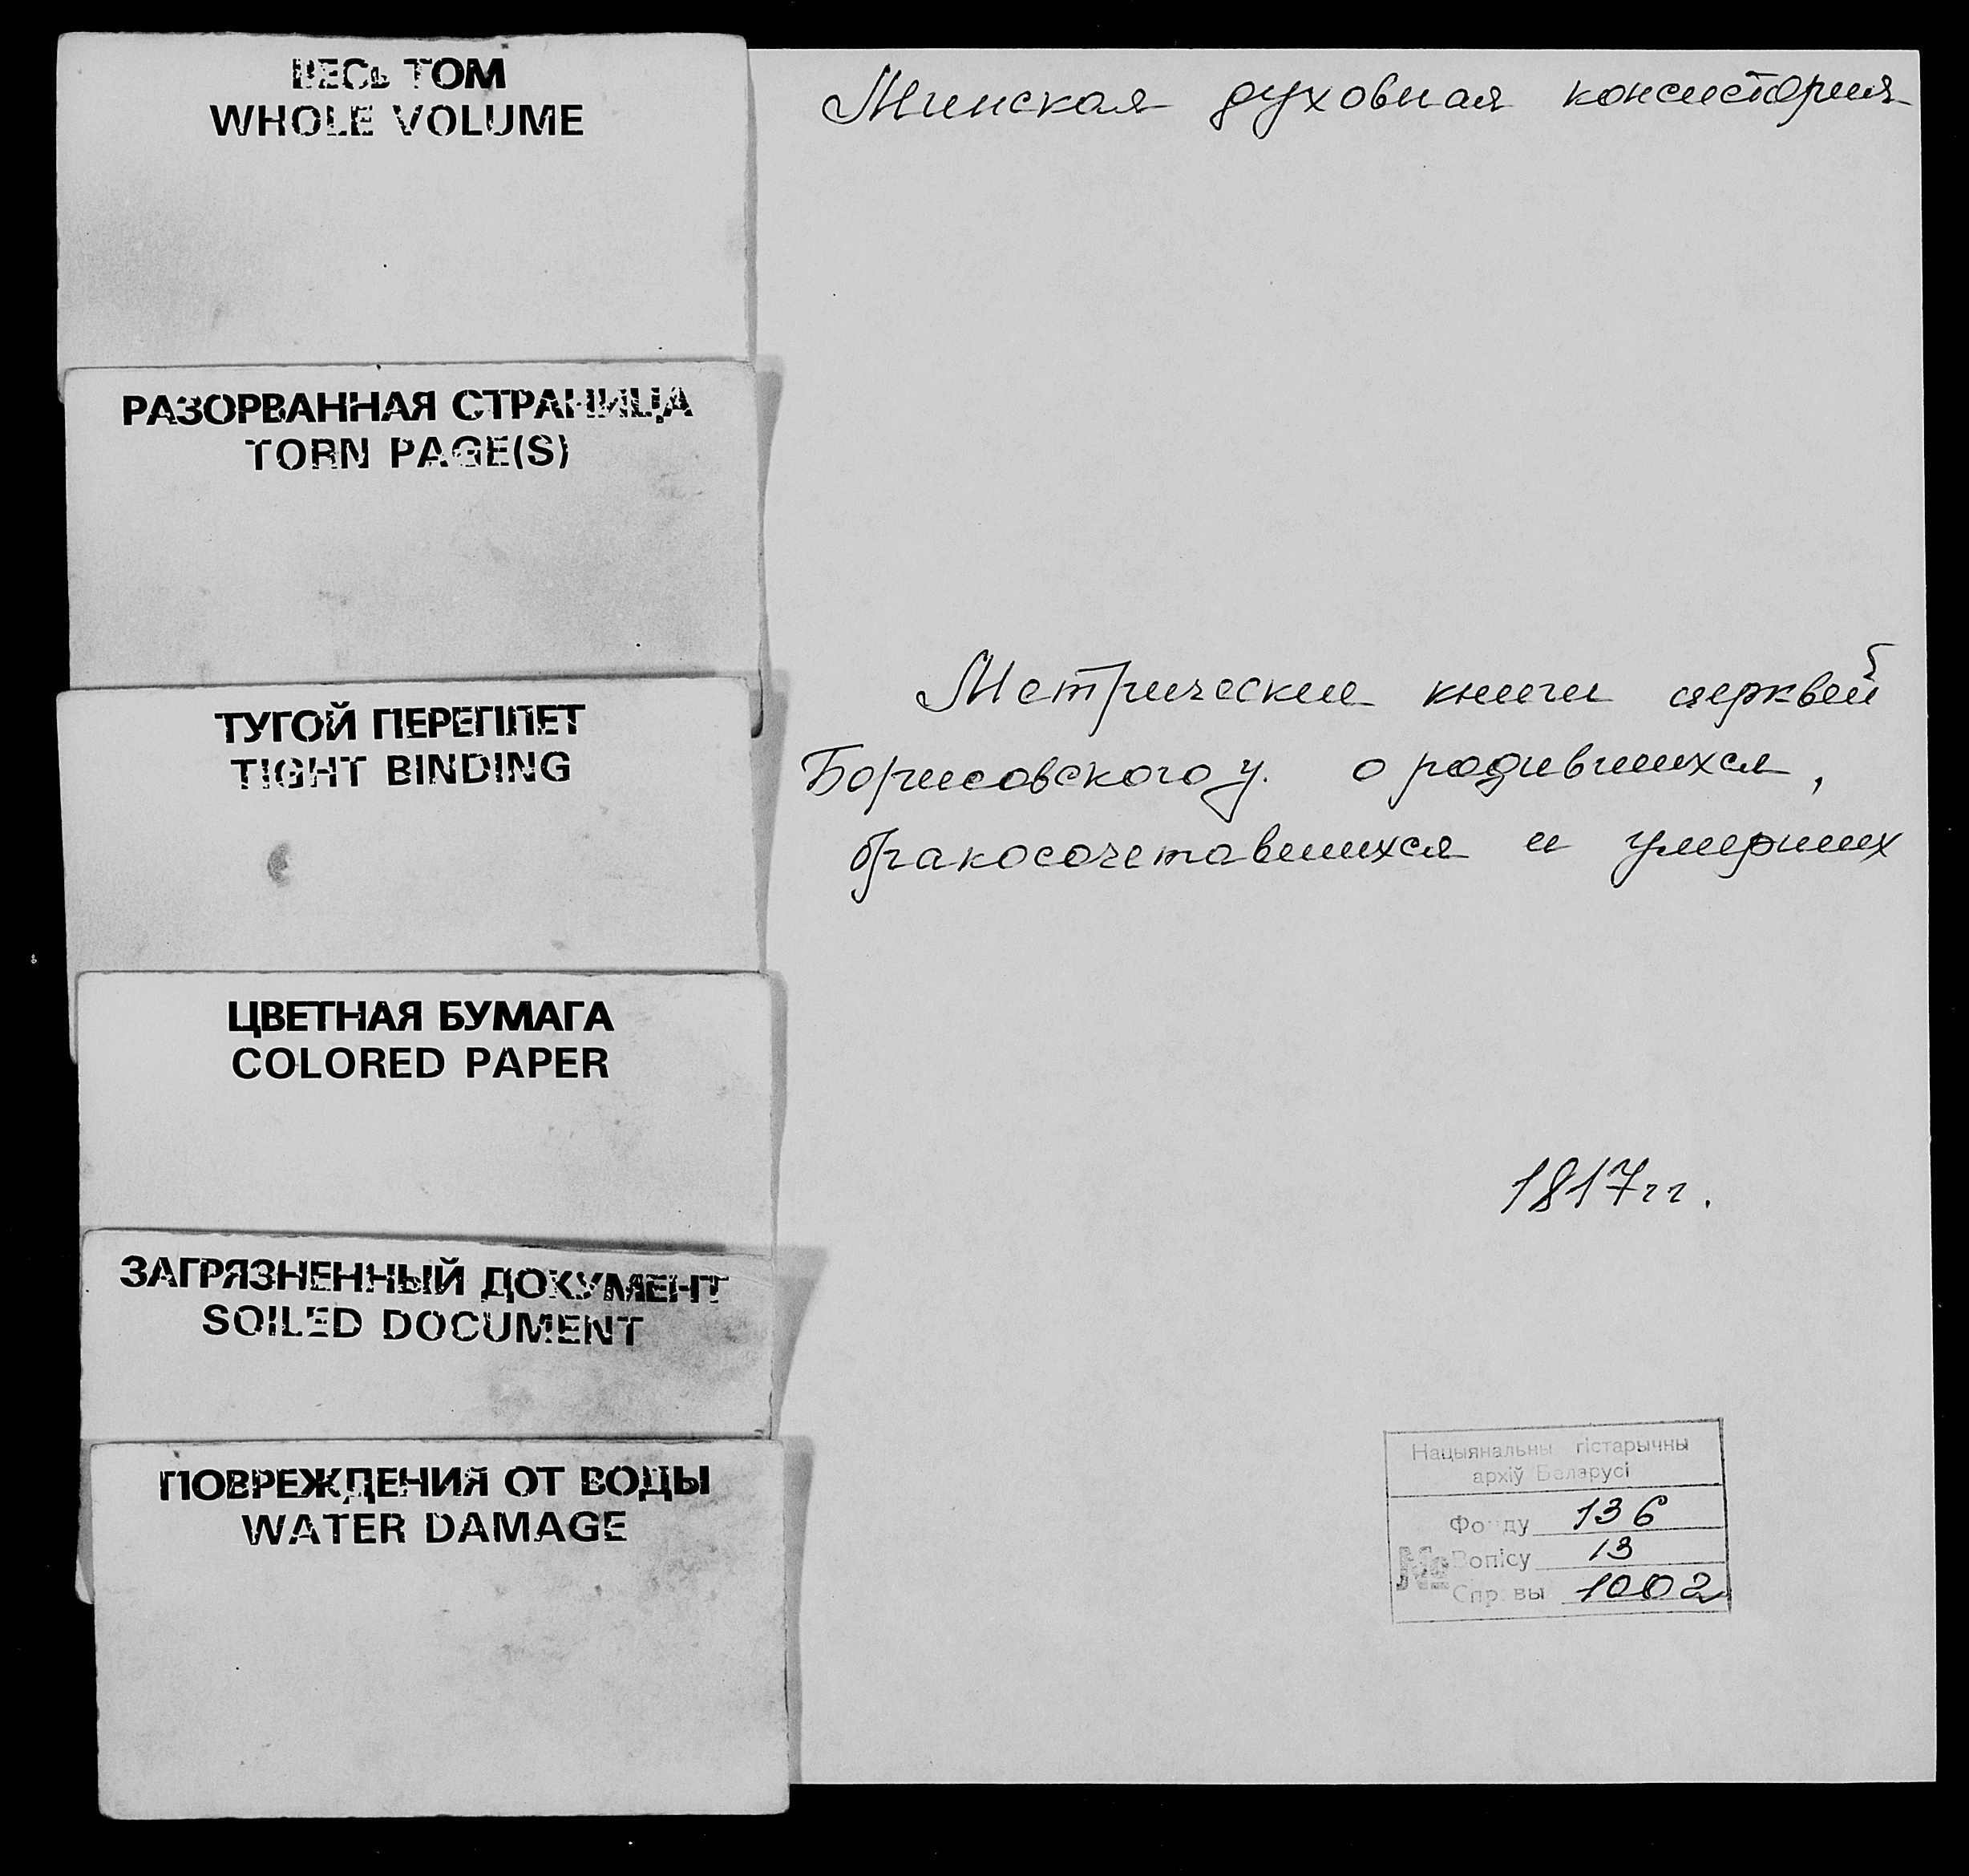 ВЕСЬ ТОМ
WHOLE VOLUME
РАЗОРВАННАЯ СТРАНИЦА
TORN PAGE(S)
ТУГОЙ ПЕРЕПЛЕТ
TIGHT BINDING
ЦВЕТНАЯ БУМАГА
COLORED PAPER
ЗАГРЯЗНЕННЫЙ ДОКУМЕНТ
SOILED DOCUMENT
ПОВРЕЖДЕНИЯ ОТ ВОДЫ
WATER DAMAGE
Минская духовная консистория
Метрические книги церквей
Борисовского у. о родившихся,
бракосочетавшихся и умерших
1817гг.
Нацыянальны гістарычны
архіў Беларусі
Фонду 136
№ Вопісу 13
Справы 1002